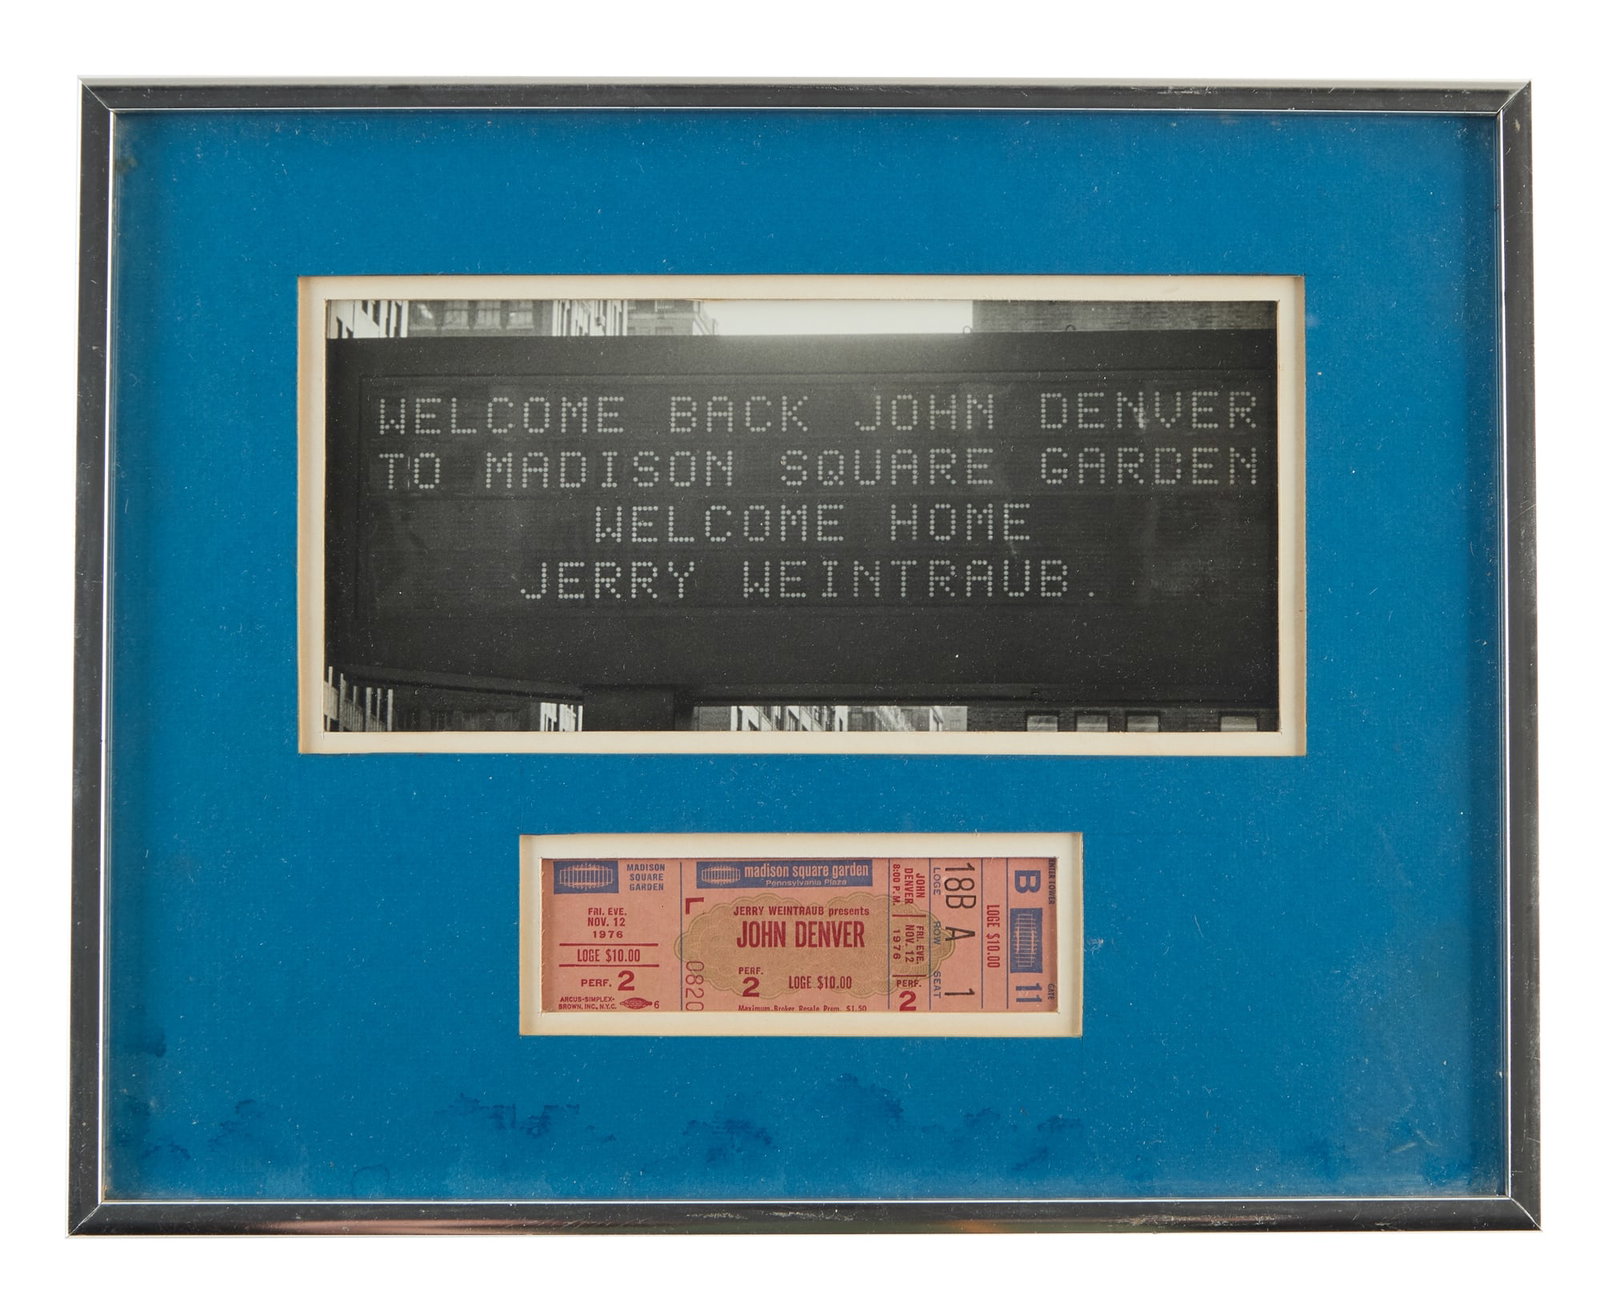 WELCOME BACK JOHN DENVER
TO MADISON SQUARE GARDEN
WELCOME HOME
JERRY WEINTRAUB.
MADISON
SQUARE
GARDEN
FRI. EVE.
NOV. 12
1976
LOGE $10.00
PERF. 2
ARCUS-SIMPLEX-
BROWN, INC. N.Y.C. 6
L
0820
madison square garden
Pennsylvania Plaza
JERRY WEINTRAUB presents
JOHN DENVER
PERF.
2 LOGE $10.00
Maximum Broker Resale Prem. $1.50
JOHN
DENVER
8:00 P.M.
FRI. EVE.
NOV. 12
1976
PERF.
2
18B A 1
LOGE ROW SEAT
LOGE $10.00
B 11
GATE